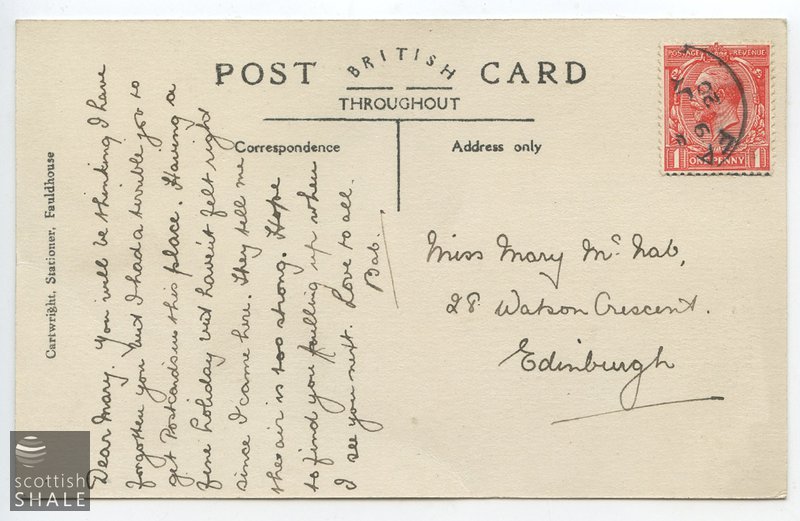 POST CARD
BRITISH
THROUGHOUT
Correspondence
Address only
POSTAGE REVENUE
1 ONE PENNY 1
Cartwright, Stationer, Fauldhouse
Dear Mary. You will be thinking I have
forgotten you but I had a terrible job to
get Postcards in this place. Having a
fine holiday but haven't felt right
since I came here. They tell me
the air is too strong. Hope
to find you pulling up when
I see you next. Love to all.
Bab.
Miss Mary Mc Nab,
28 Watson Crescent.
Edinburgh
scottish
SHALE